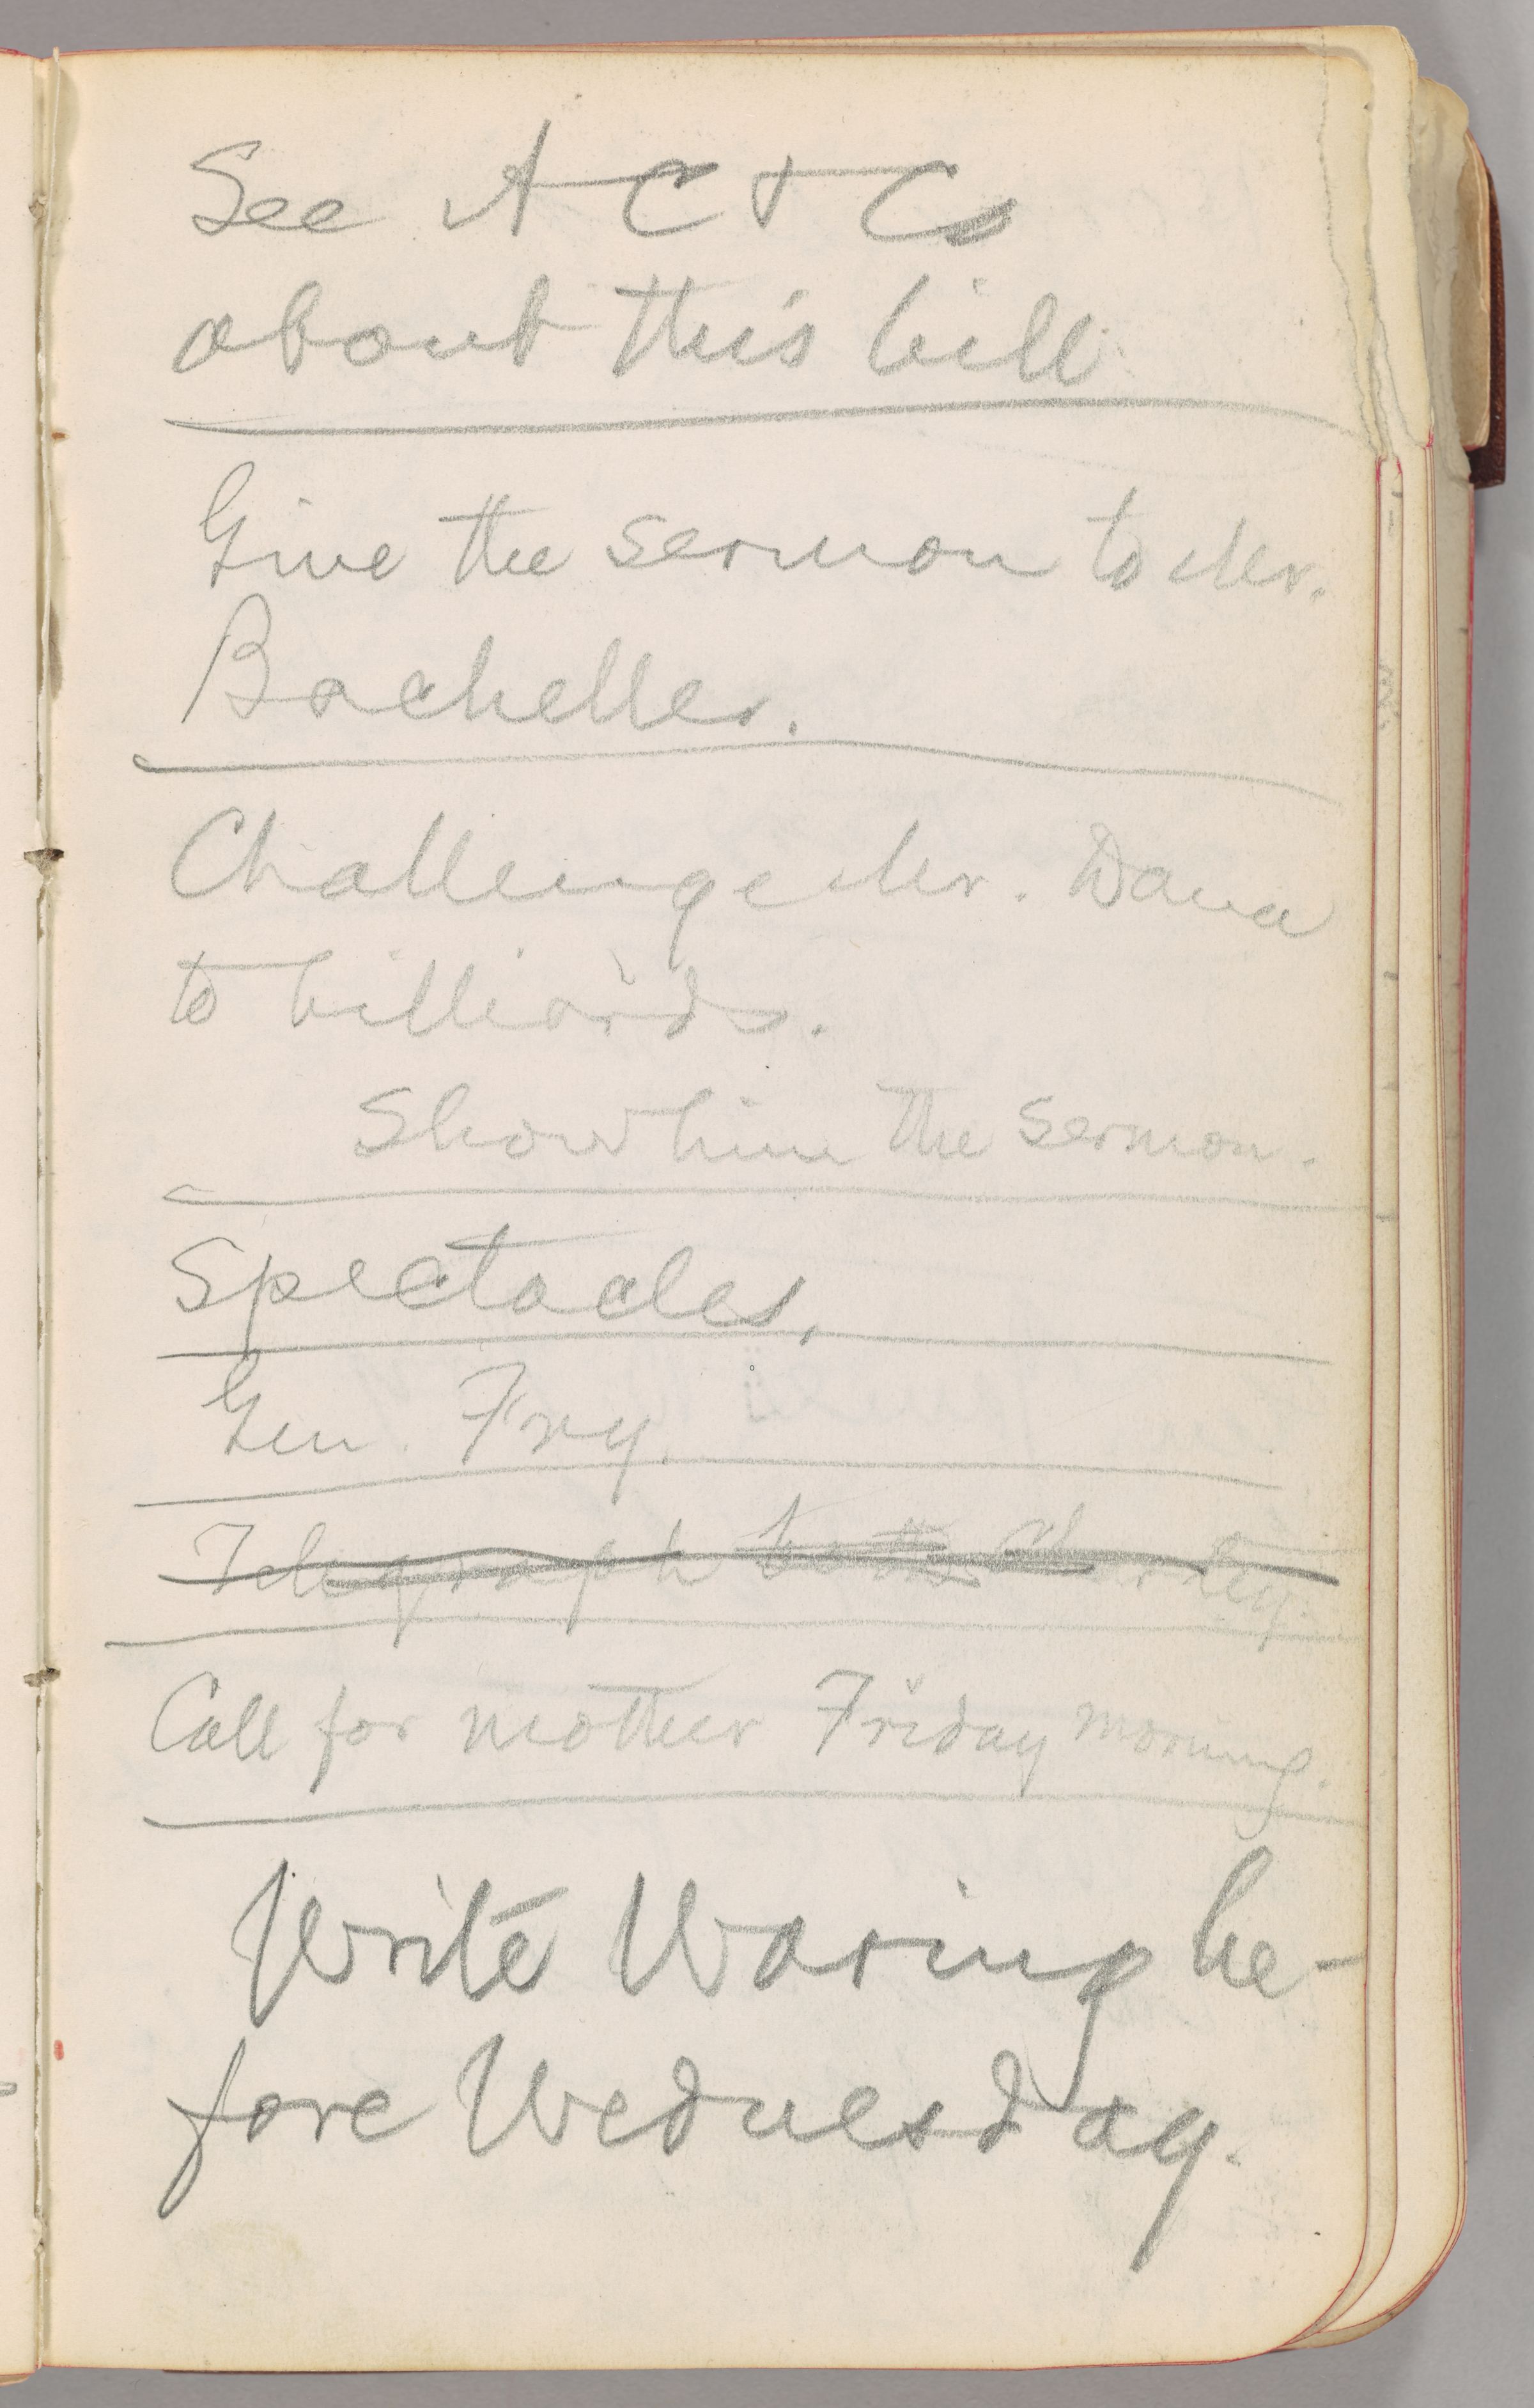 See A C & Co
about this bill
Give the sermon to Mr.
Bacheller.
Challenge Mr. Dana
to billiards.
Show him the sermon.
Spectacles.
Gen. Fry.
Telegraph to the
Call for mother Friday morning.
Write Waring be-
fore Wednesday.